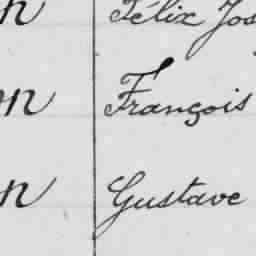 n Félix Jos
on François
n Gustave